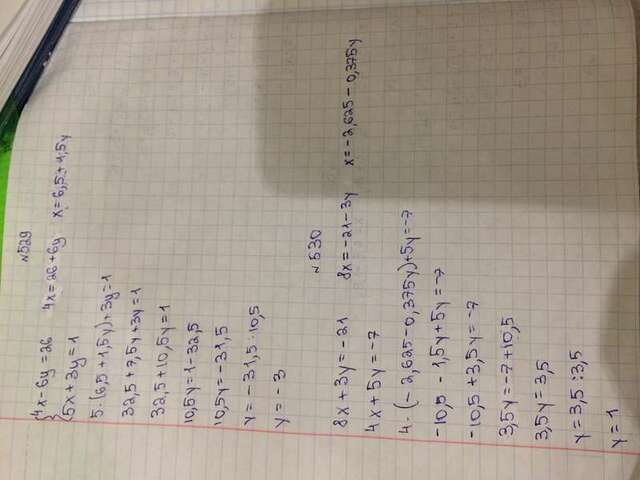 №529
4x-6y=26 4x=26+6y x=6,5+1,5y
5x+3y=1
5·(6,5+1,5y)+3y=1
32,5+7,5y+3y=1
32,5+10,5y=1
10,5y=1-32,5
10,5y=-31,5
y=-31,5:10,5
y=-3
№530
8x+3y=-21 8x=-21-3y x=-2,625-0,375y
4x+5y=-7
4·(-2,625-0,375y)+5y=-7
-10,5-1,5y+5y=-7
-10,5+3,5y=-7
3,5y=-7+10,5
3,5y=3,5
y=3,5:3,5
y=1